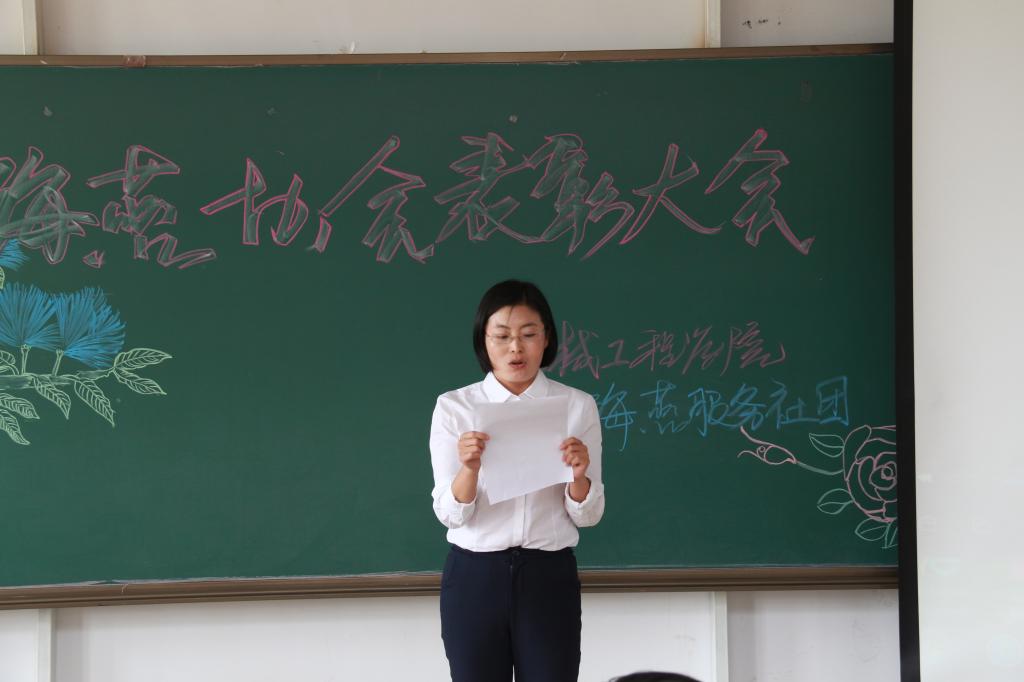 海燕协会表彰大会
械工程学院
海燕服务社团